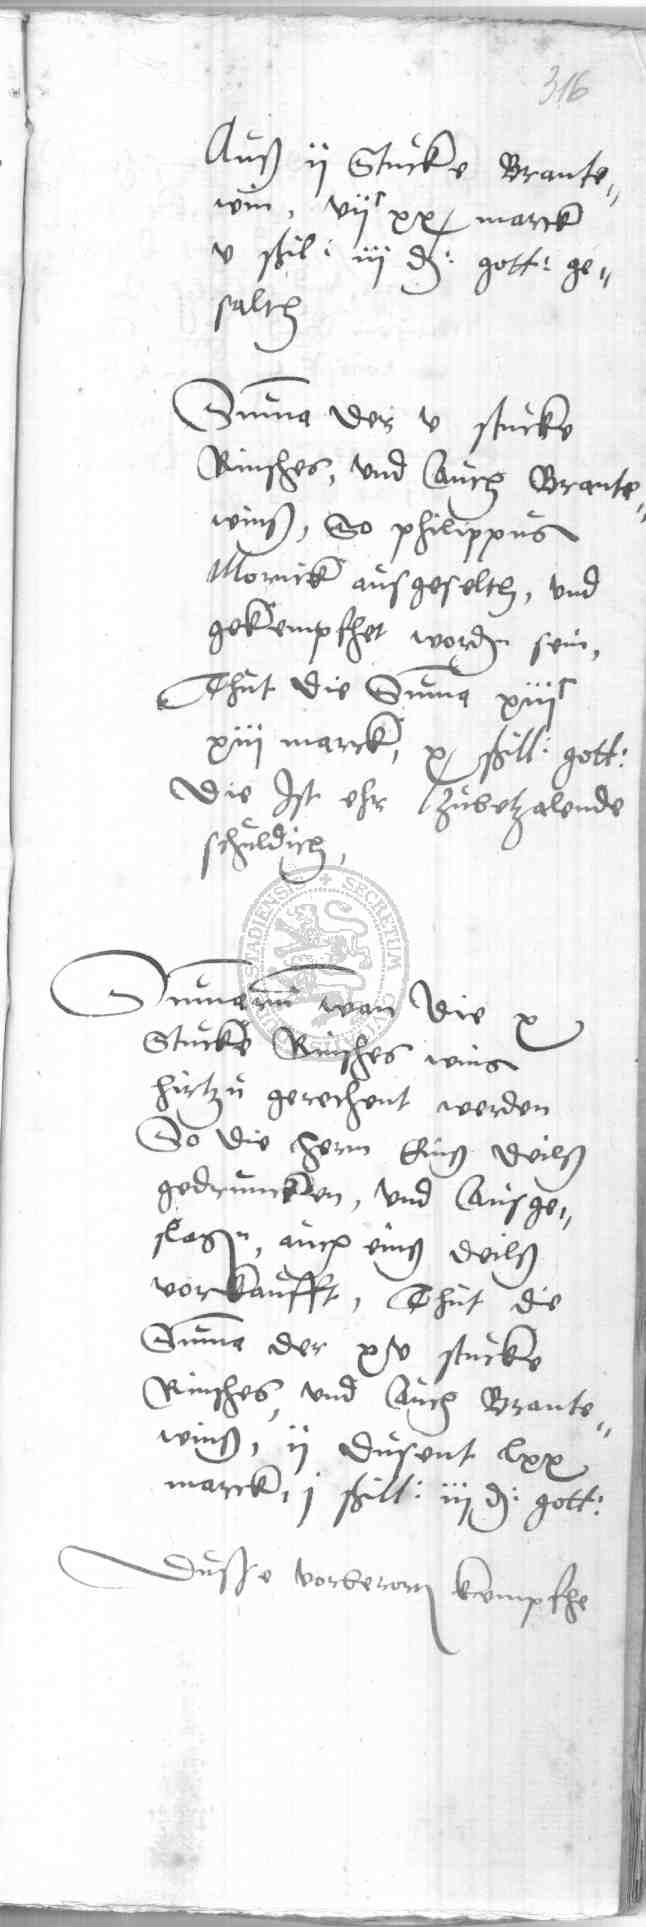 316
Auß ij Stucke Brante„
win, vijᶜ xx marck
v ßil: iij d: gott: ge„
salth
Summa der v stucke
Rinsches, vnd Auch Brante„
winß, So philippus
Mornick ausgeselth, vnd
gekempfhet worden sein,
Thut die Summa xiijᶜ
xiij marck, x ßill: gott:
Die Ist ehr Zubetzalende
schuldich,
Summarum wan die x
Stucke Rinsches wins
hirtzu gerechent werden
So die hern Einß deilß
gedruncken, vnd Ausge„
slagen, auch einß deilß
vorkaufft, Thut die
Summa der xv stucke
Rinsches, vnd Auch Brante„
winß, ij dusent lxx
marck, j ßill: iij d: gott:
Dusse vorberort kempfhe
SECRETUM CIVITATIS STADIENSIS